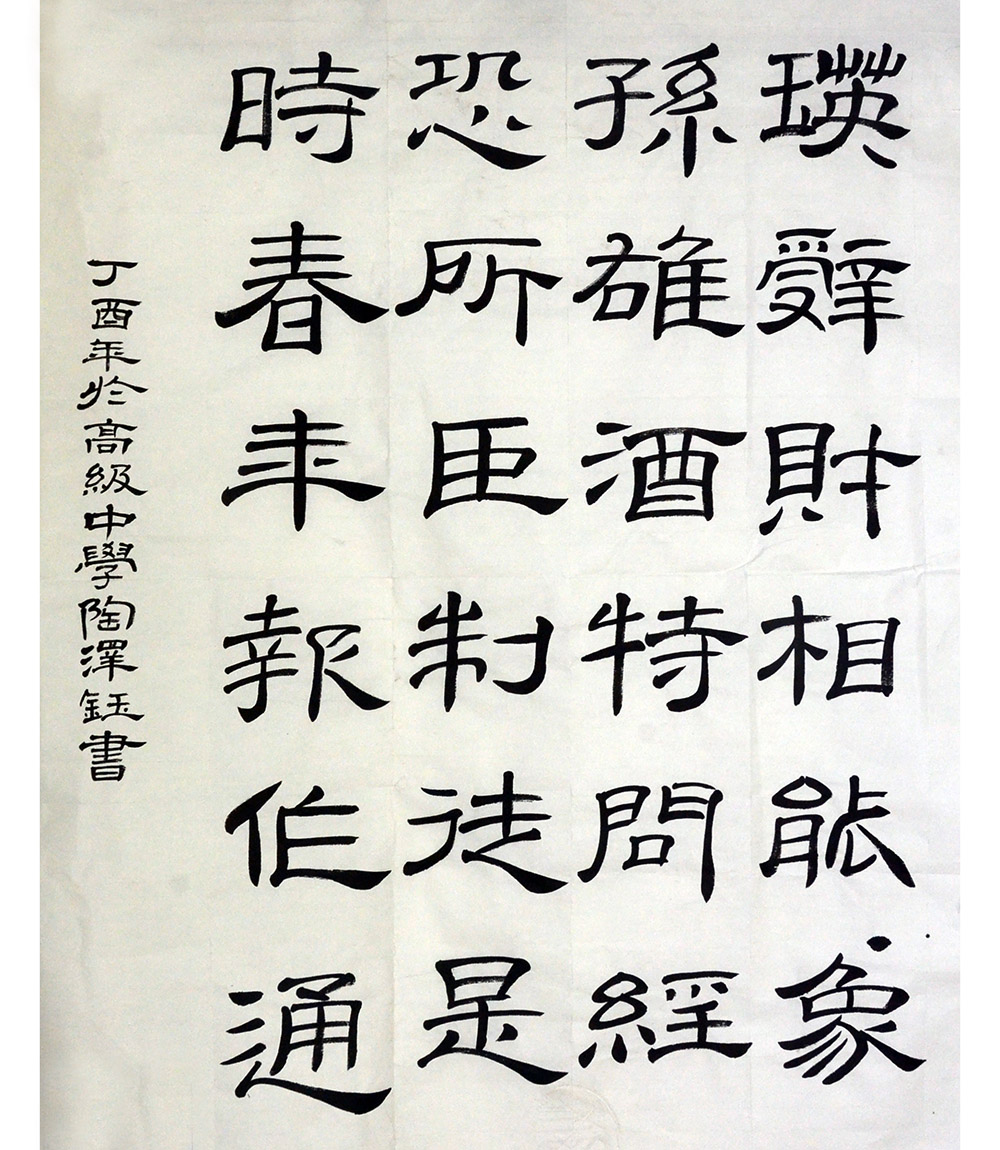 瑛辭財相能象
孫雄酒特問經
恐所臣制徒是
時春年報作通
丁酉年於高級中學陶澤鈺書